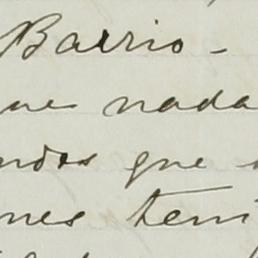 Barrio-
ue nada
ndos que
nes tení